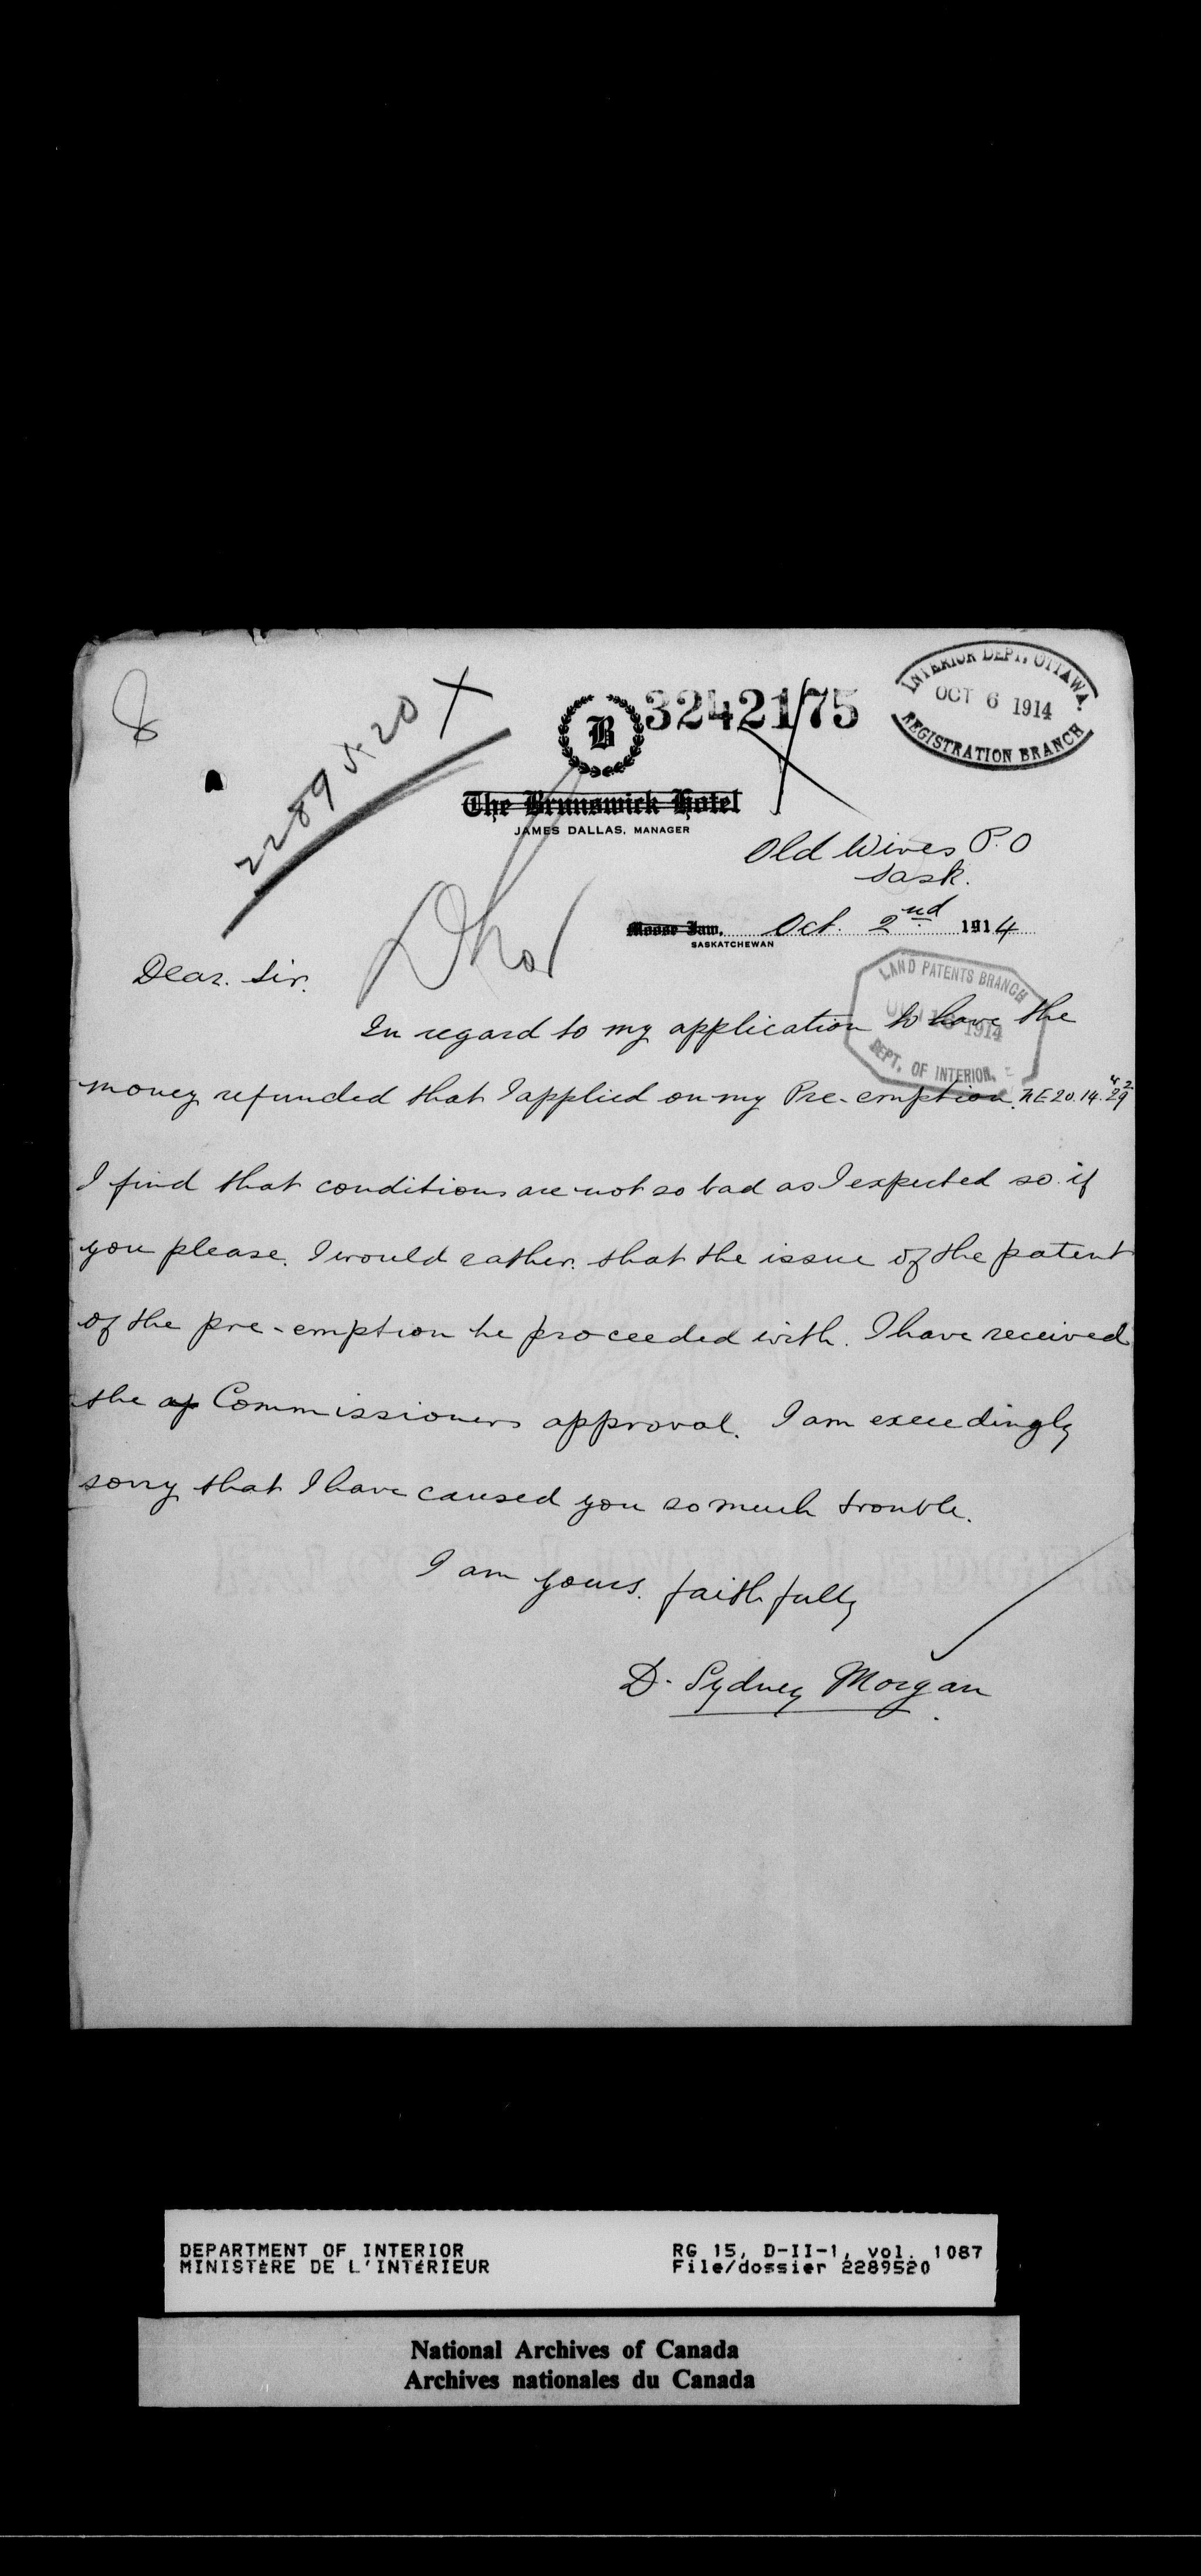 8
2289520
B
3242175
INTERIOR DEPT. OTTAWA.
OCT 6 1914
REGISTRATION BRANCH
The Brunswick Hotel
JAMES DALLAS, MANAGER
Old Wives P.O
Sask.
Moose Jaw, Oct. 2nd 1914
SASKATCHEWAN
Dear. Sir.
LAND PATENTS BRANCH
1914
DEPT. OF INTERIOR
In regard to my application to have the
money refunded that I applied on my Pre-emption. NE 20.14.29 W2
I find that conditions are not so bad as I expected so if
you please. I would rather. that the issue of the patent
of the pre-emption be proceeded with. I have received
the ap Commissioners approval. I am exceedingly
sorry that I have caused you so much trouble.
I am yours. faithfully
D. Sydney Morgan
DEPARTMENT OF INTERIOR
MINISTÈRE DE L'INTÉRIEUR
RG 15, D-II-1, vol. 1087
File/dossier 2289520
National Archives of Canada
Archives nationales du Canada